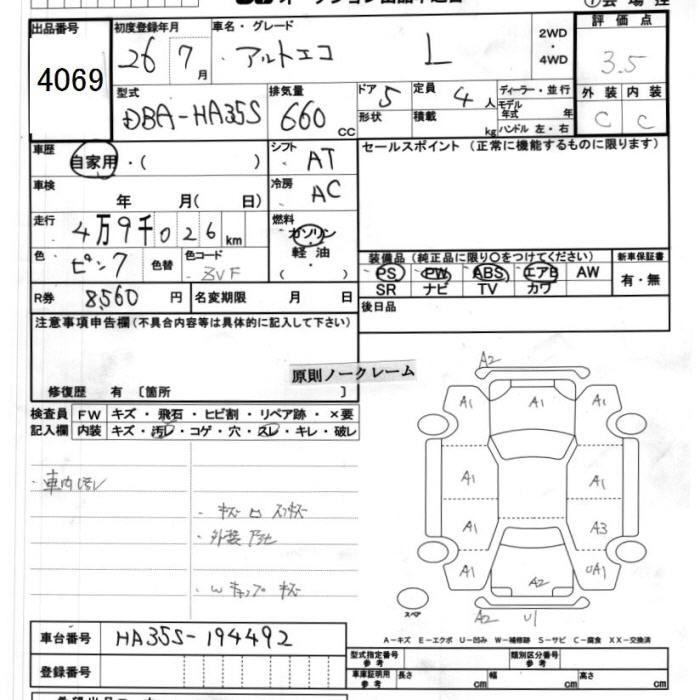 出品番号 初度登録年月 車名・グレード 2WD・4WD 評価点
4069 26年7月 アルトエコ L 3.5
型式 排気量 ドア 定員 ディーラー・並行 外装 内装
DBA-HA35S 660cc 5 4人 モデル年式 年 C C
形状 積載 kg ハンドル 左・右
車歴 自家用・( ) シフト AT セールスポイント (正常に機能するものに限ります)
車検 年 月( 日) 冷房 AC
走行 4万9千026km 燃料 ガソリン・軽油・( )
色 ピンク 色替 色コード BVF
装備品 (純正品に限り○をつけてください) 新車保証書
PS PW ABS エアB AW 有・無
SR ナビ TV カワ
R券 8,560円 名変期限 月 日 後日品
注意事項申告欄(不具合内容等は具体的に記入して下さい)
原則ノークレーム
修復歴 有 〔箇所 〕
検査員 FW キズ・飛石・ヒビ割・リペア跡・×要
記入欄 内装 キズ・汚レ・コゲ・穴・スレ・キレ・破レ
・車内汚レ
・外装
A2
A1 A1 A1
A1 A1
A1 A3
A1 A2 UA1
A2 U1
スペア
A-キズ E-エクボ U-凹み W-補修跡 S-サビ C-腐食 XX-交換済
車台番号 HA35S-194492
型式指定番号 参考 類別区分番号 参考
登録番号
車庫証明用 参考 長さ cm 幅 cm 高さ cm